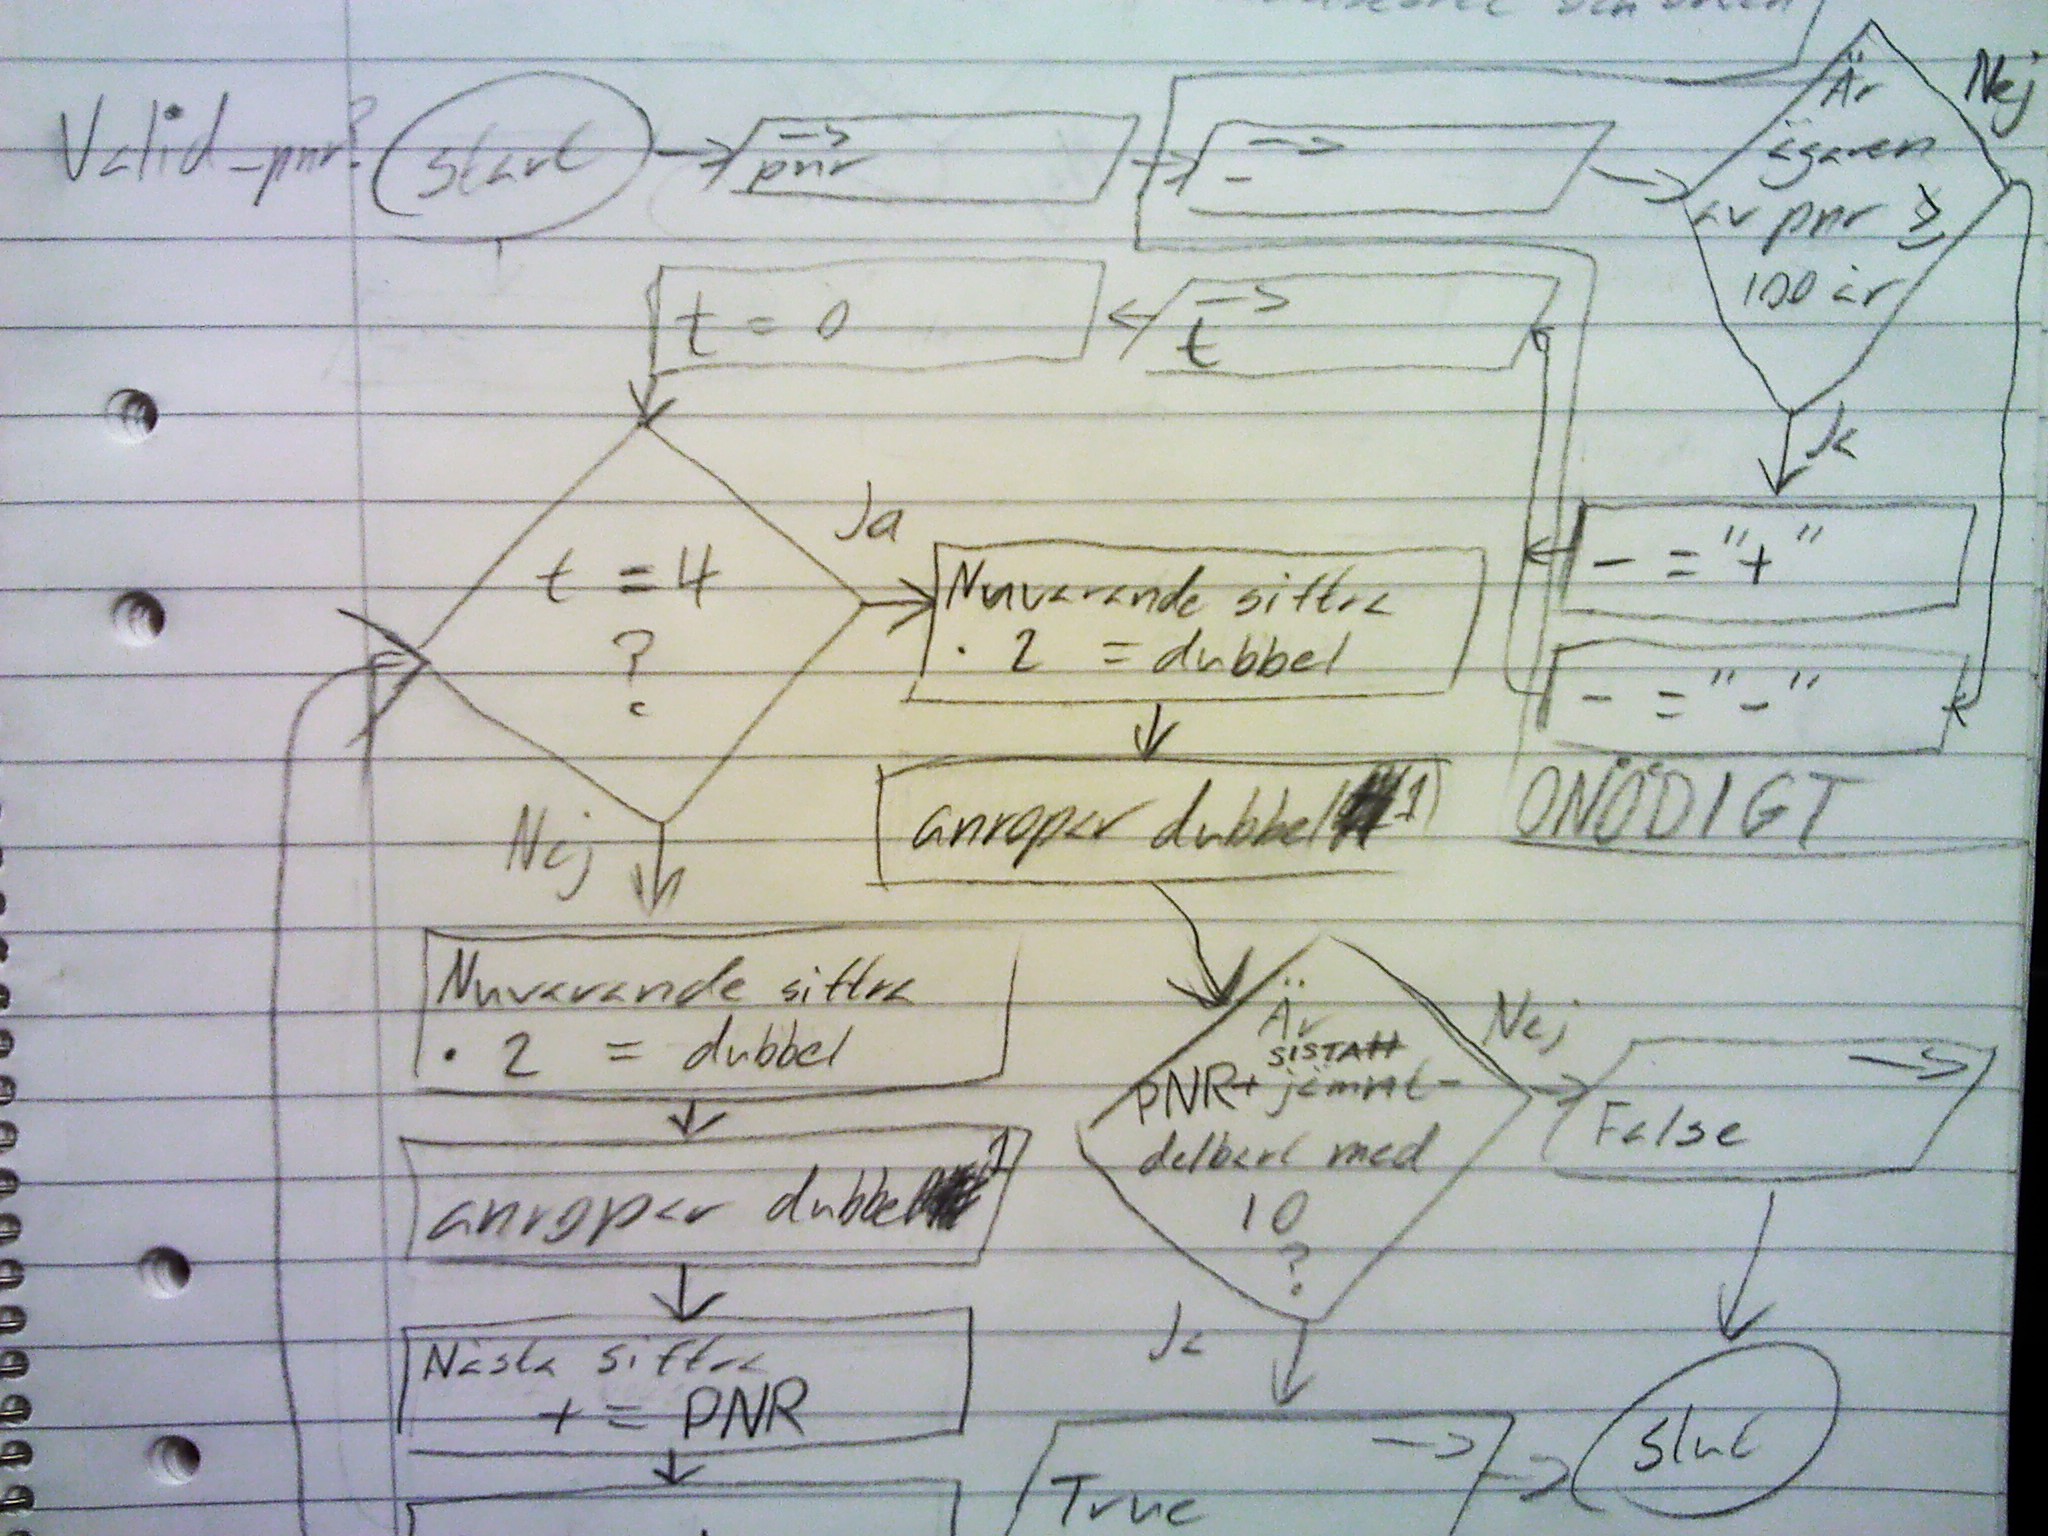 Valid_pnr?
start
pnr
-
Är
ägaren
av pnr ≥
100 år
Nej
Ja
t
t = 0
t = 4
?
Ja
Nuvarande siffra
· 2 = dubbel
- = "+"
- = "-"
ONÖDIGT
anropar dubbel 1
Nej
Nuvarande siffra
· 2 = dubbel
anropar dubbel 1
Nästa siffra
+ = PNR
Är
PNR+ jämnt-
delbart med
10
?
Nej
False
Ja
True
slut